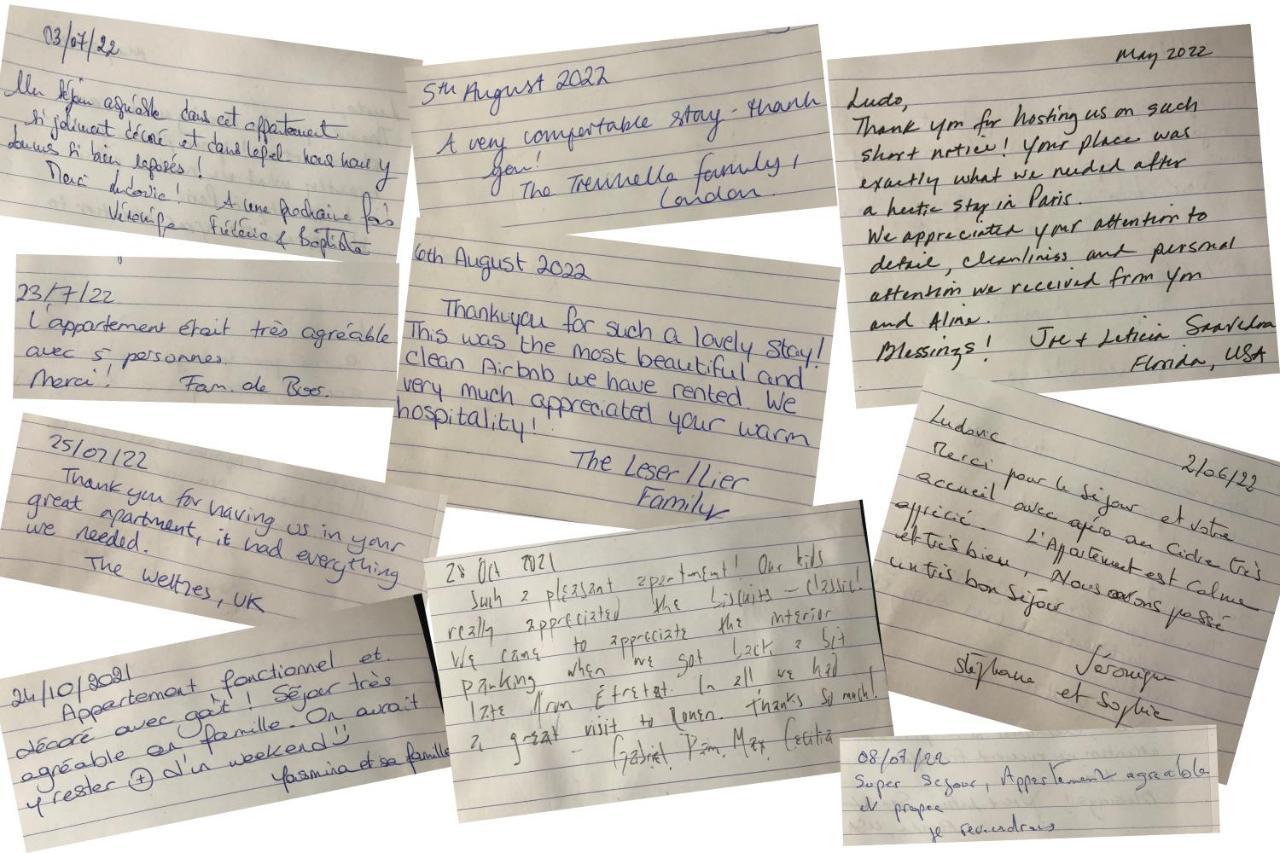 03/07/22
Un séjour agréable dans cet appartement
si joliment décoré et dans lequel nous nous y
sommes si bien reposés !
Merci Ludovic ! A une prochaine fois
Véronique Frédéric & Baptiste
5th August 2022
A very comfortable stay - thank
you!
The Trennella family,
London.
May 2022
Ludo,
Thank you for hosting us on such
short notice! Your place was
exactly what we needed after
a hectic stay in Paris.
We appreciated your attention to
detail, cleanliness and personal
attention we received from you
and Aline.
Blessings! Joe & Leticia Saavedra
Florida, USA
23/7/22
L'appartement était très agréable
avec 5 personnes
Merci! Fam. de Boos.
6th August 2022
Thankyou for such a lovely stay!
This was the most beautiful and
clean Airbnb we have rented. We
very much appreciated your warm
hospitality!
The Leser/Lier
Family
25/07/22
Thank you for having us in your
great apartment, it had everything
we needed.
The Weltzes, UK
Ludovic 2/06/22
Merci pour le séjour et votre
accueil avec apéro au Cidre très
apprécié. L'Appartement est Calme
et très bien, Nous avons passé
un très bon séjour
Véronique
Stéphane et Sophie
28 Oct 2021
Such a pleasant apartment! Our kids
really appreciated the biscuits - classic!
We came to appreciate the interior
parking when we got back a bit
late from Étretat. In all we had
a great visit to Rouen. Thanks so much!
- Gabriel Pam, Max
24/10/2021
Appartement fonctionnel et
décoré avec goût ! Séjour très
agréable en famille. On aurait
y rester + d'un weekend
Yasmina et sa famille
08/07/22
Super Sejour, Appartement agreable
et propre
je reviendrais